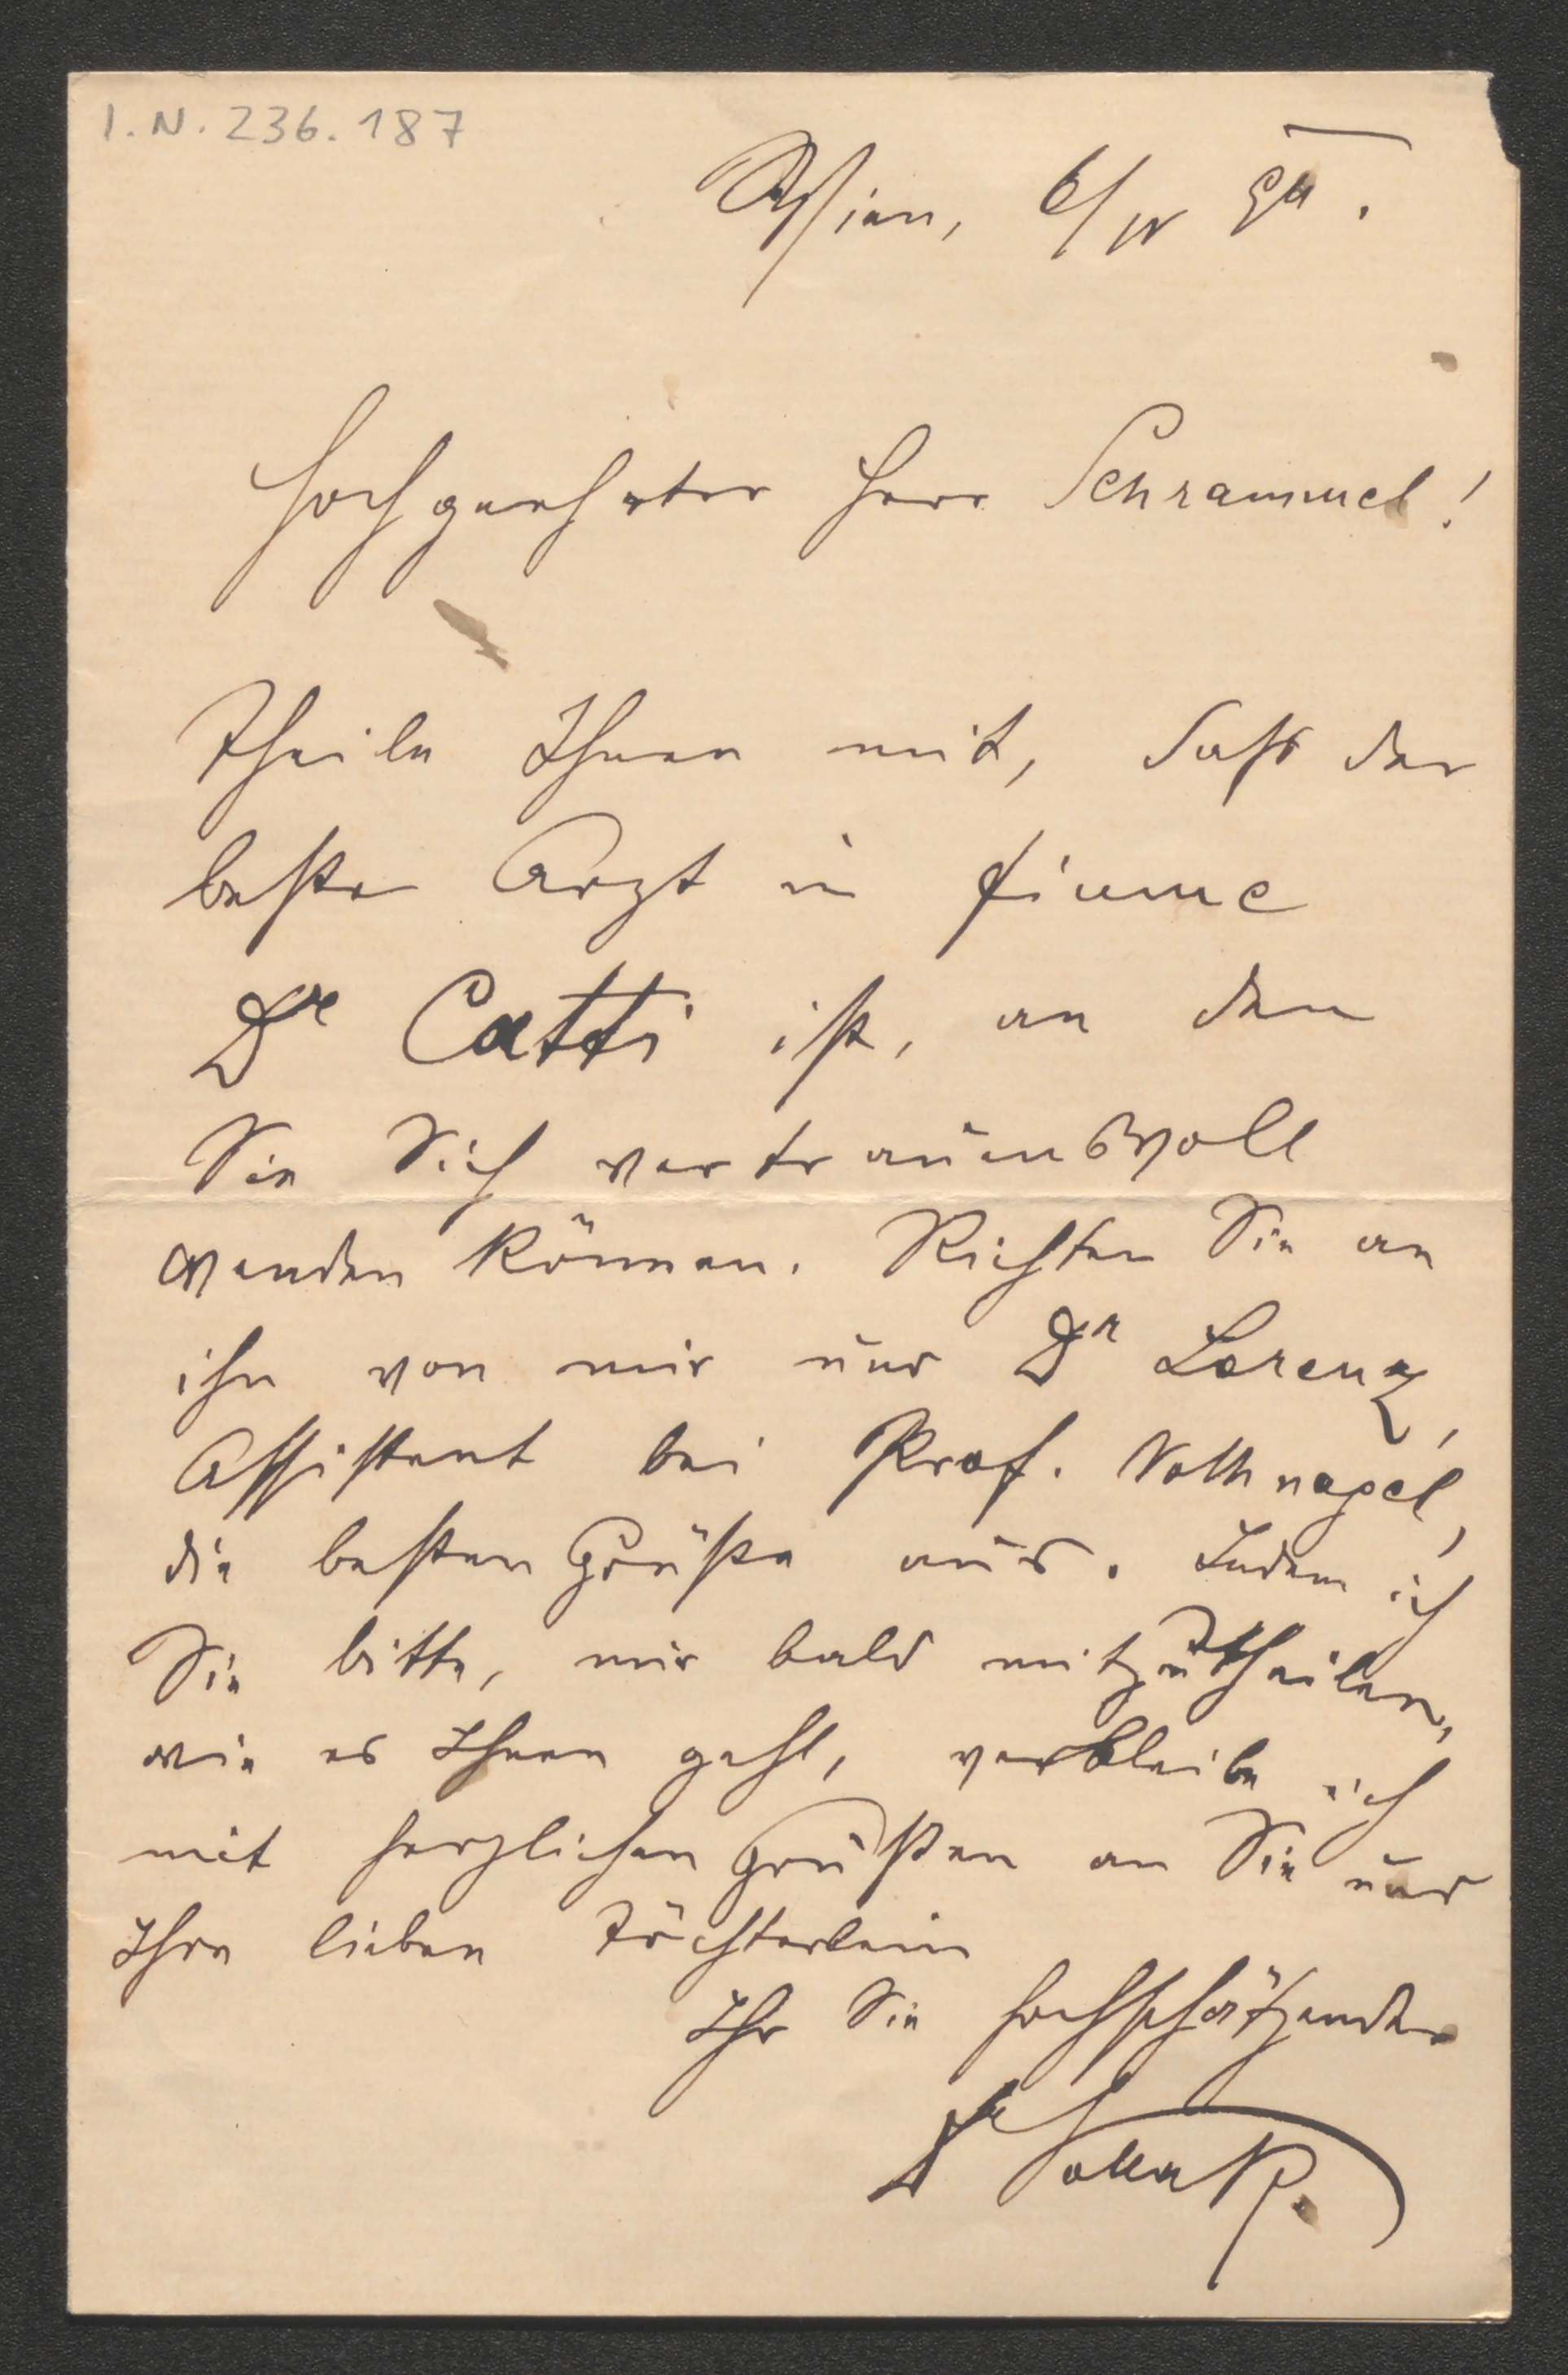 I.N. 236.187
Wien, 6/IV 90.
Hochgeehrter Herr Schrammel!
Theile Ihnen mit, daß der
beste Arzt in Fiume
Dr Catti ist, an den
Sie Sich vertrauensvoll
wenden können. Richten Sie an
ihn von mir und Dr Lorenz,
Assistent bei Prof. Nothnagel,
die besten Grüße aus. Indem ich
Sie bitte, mir bald mitzutheilen,
wie es Ihnen geht, verbleibe ich
mit herzlichen Grüßen an Sie und
Ihre lieben Töchterlein
Ihr Sie hochschätzender
Dr